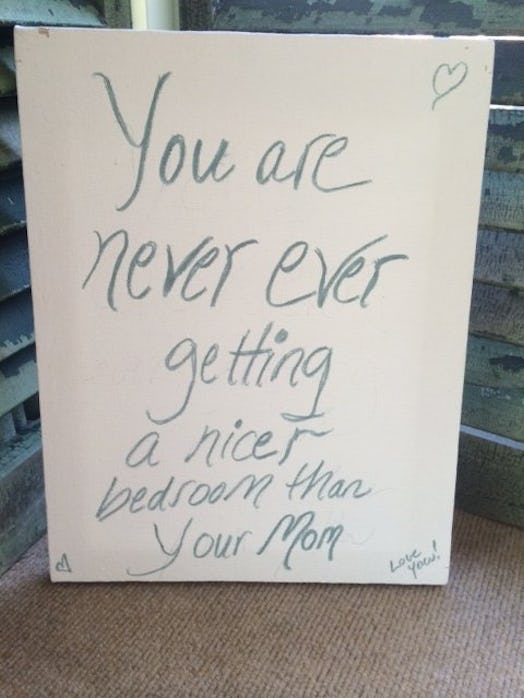 You are
never ever
getting
a nicer
bedroom than
Your Mom
Love
You!